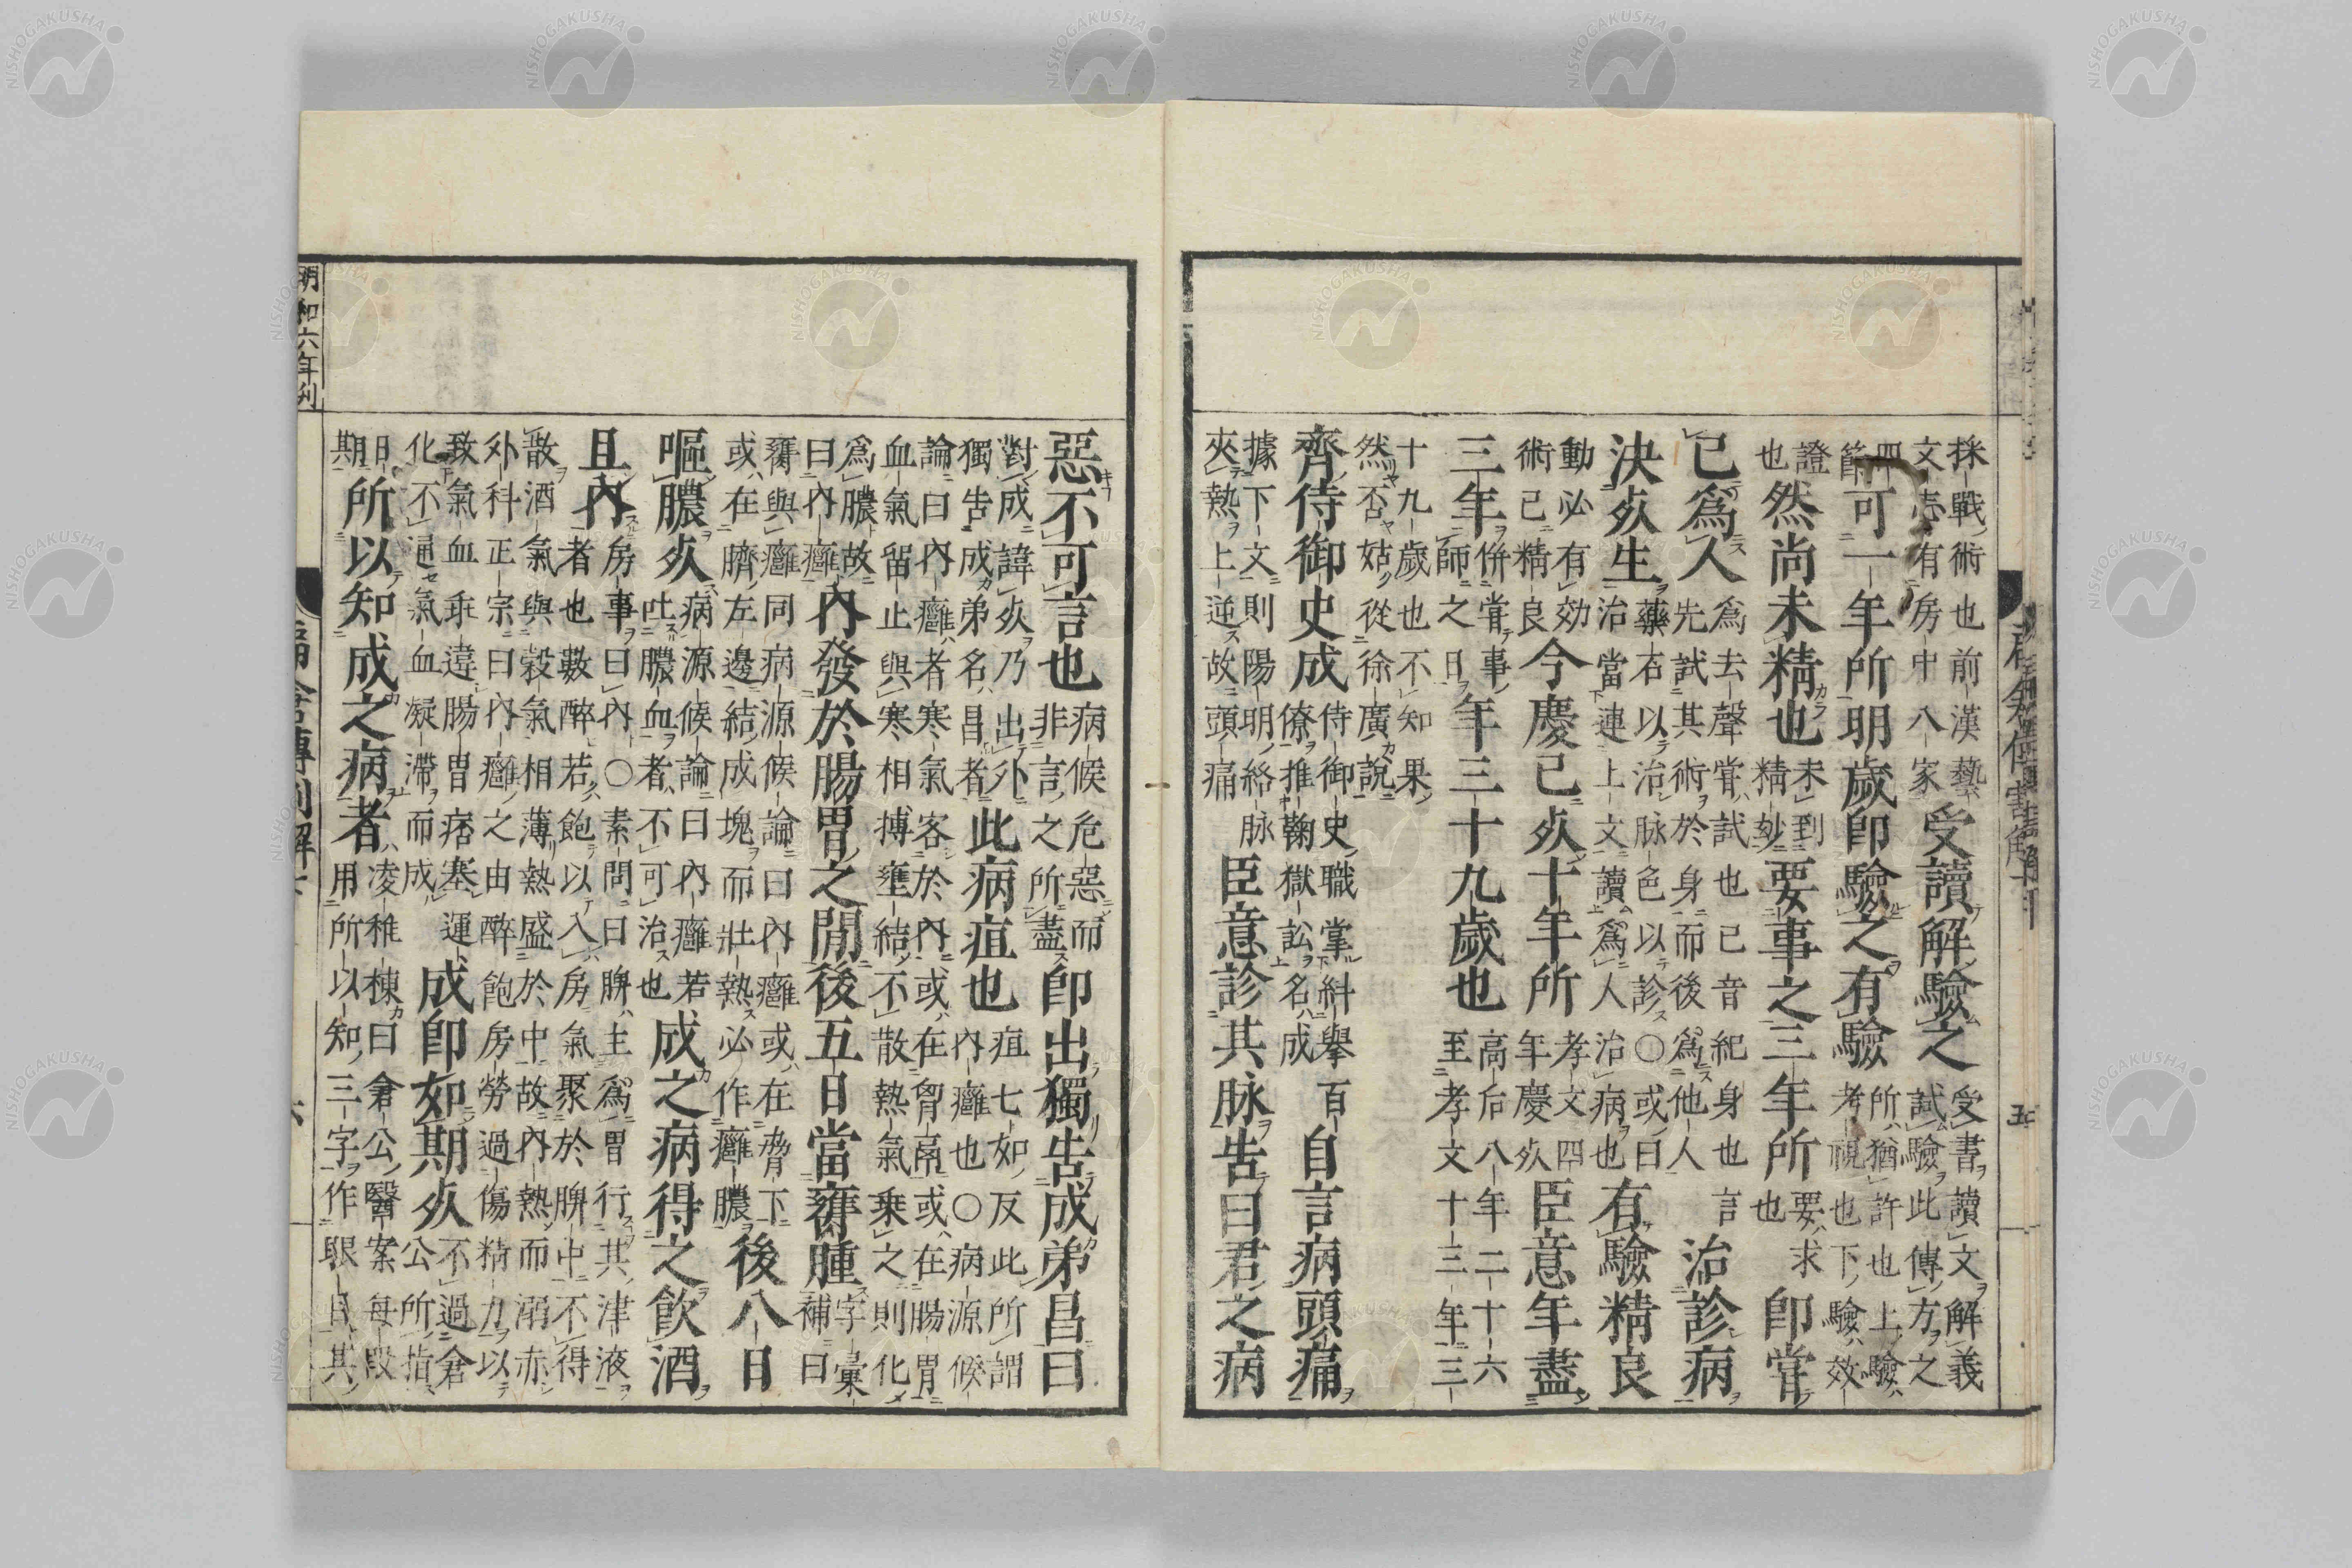 採戰術也前漢藝
文志有房中八家
受讀解驗之
受書讀文解義
試驗此傳方之
四
節
可一年所明歲即驗之有驗
所猶許也上驗
考視也下驗效
證
也
然尚未精也
未到
精妙
要事之三年所
要求
也
即嘗
已爲人
爲去聲嘗試也已音紀身也言
先試其術於身而後爲他人
治診病
決死生
藥石以治脉色以診○或曰
治當下連上文讀爲人治病也
有驗精良
動必有効
術已精良
今慶已死十年所
孝文四
年慶死
臣意年盡
三年
併嘗事
師之日
年三十九歲也
高后八年二十六
至孝文十三年三
十九歲也不知果
然否姑從徐廣說
齊侍御史成
侍御史職掌糾舉百
僚推鞠獄訟名成
自言病頭痛
據下文則陽明絡脉
夾熱上逆故頭痛
臣意診其脉告曰君之病
五
惡不可言也
病候危惡而
非言之所盡
即出獨告成弟昌曰
對成諱死乃出外
獨告成弟名昌者
此病疽也
疽七如反此所謂
內癰也○病源候
論曰內癰者寒氣客於內或在胷鬲或在腸胃
血氣留止與寒相搏壅結不散熱氣乗之則化
爲膿故
曰內癰
內發於腸胃之間後五日當癕腫
字彙
補曰
癕與癰同病源候論曰內癰或在脅下
或在臍左邊結成塊而壯熱必作癰膿
後八日
嘔膿死
病源候論曰內癰若
吐膿血者不可治也
成之病得之飮酒
且內
房事曰內○素問曰脾主爲胃行其津液
者也數醉若飽以入房氣聚於脾中不得
散酒氣與穀氣相薄熱盛於中故內熱而溺赤
外科正宗曰內癰之由醉飽房勞過傷精力以
致氣血乖違腸胃痞塞運
化不通氣血凝滯而成
成即如期死
不過倉
公所指
日
期
所以知成之病者
凌稚棟曰倉公醫案每叚
用所以知三字作眼目其
明和六年刋
扁倉傳割解下
六
NISHOGAKUSHA